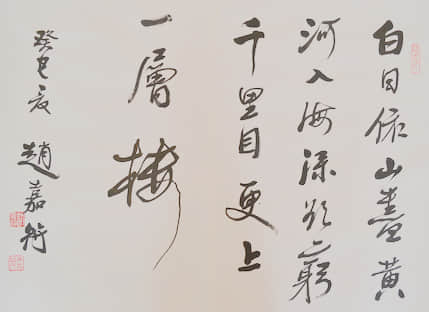 白日依山盡黃
河入海流欲窮
千里目更上
一層樓
癸巳夏 趙嘉